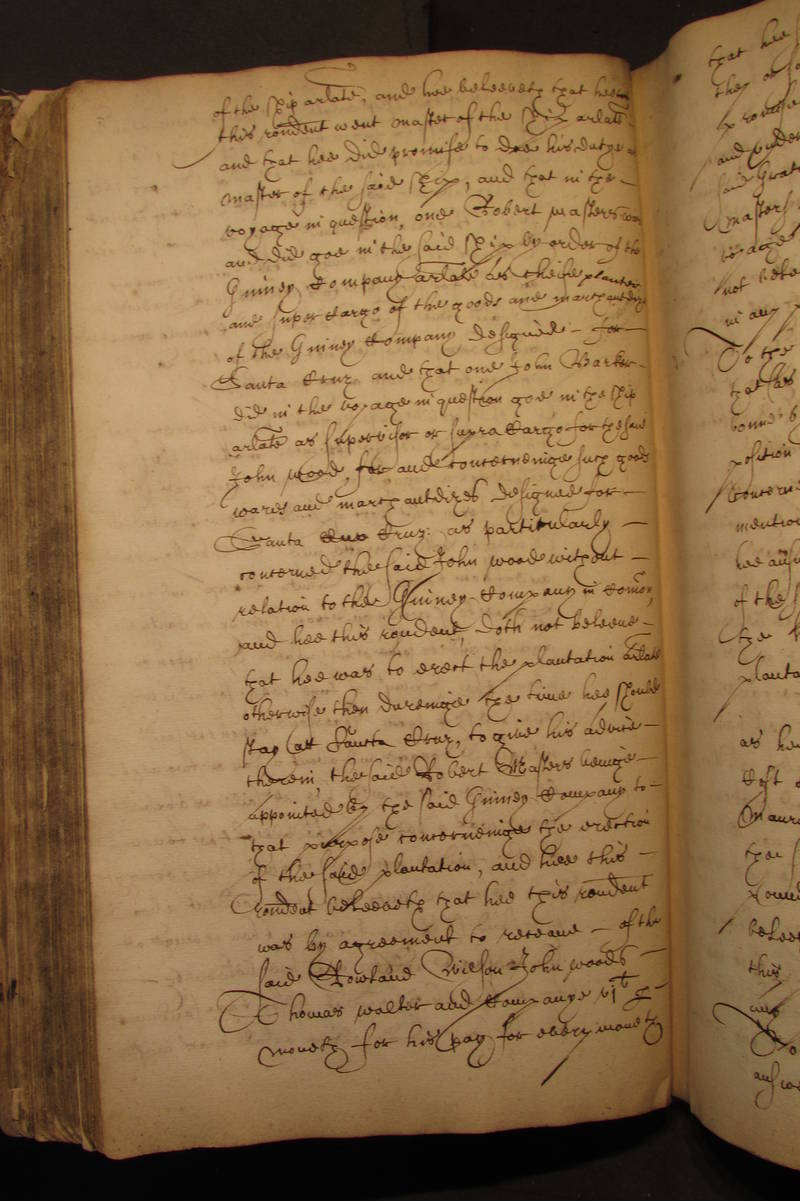 of the ship arlate, and hee beleeveth that hee
this rondent went master of the ship arlate
and that hee did promise to doe his dutye as
master of the said ship, and that in the –
voyage in question, one Robert Masters was
and did goe in the said ship by order of the
Guiney Company arlate as cheife planter
and super Cargo of the goods and marchandizes
of the Guiney Company designed – for –
Santa Cruz and that one John Barker –
did in the voyage in question goe in the ship
arlate as supervisor or supra Cargo for the said
John Wood, for and concerninge such goods
wares and marchandizes designed for –
Santa Cruz as particularly –
concerned the said John Wood without –
relation to the Guiney Company in Comon,
and hee this rondent doth not beleeve –
that hee was to erect the plantation arlate
otherwise then dureinge the time hee should
stay att Santa Cruz, to give his advice –
therein, the said Robert Masters beinge –
appointed by the said Guiney Company to –
that purpose concerneinge the erection
of the said plantation, and hee this –
rondent beleeveth that hee this rondent
was by agreement to receave – of the
said Rowland Wilson John Woods –
Thomas Walter and Companye vi li
moneth for his pay for every moneth